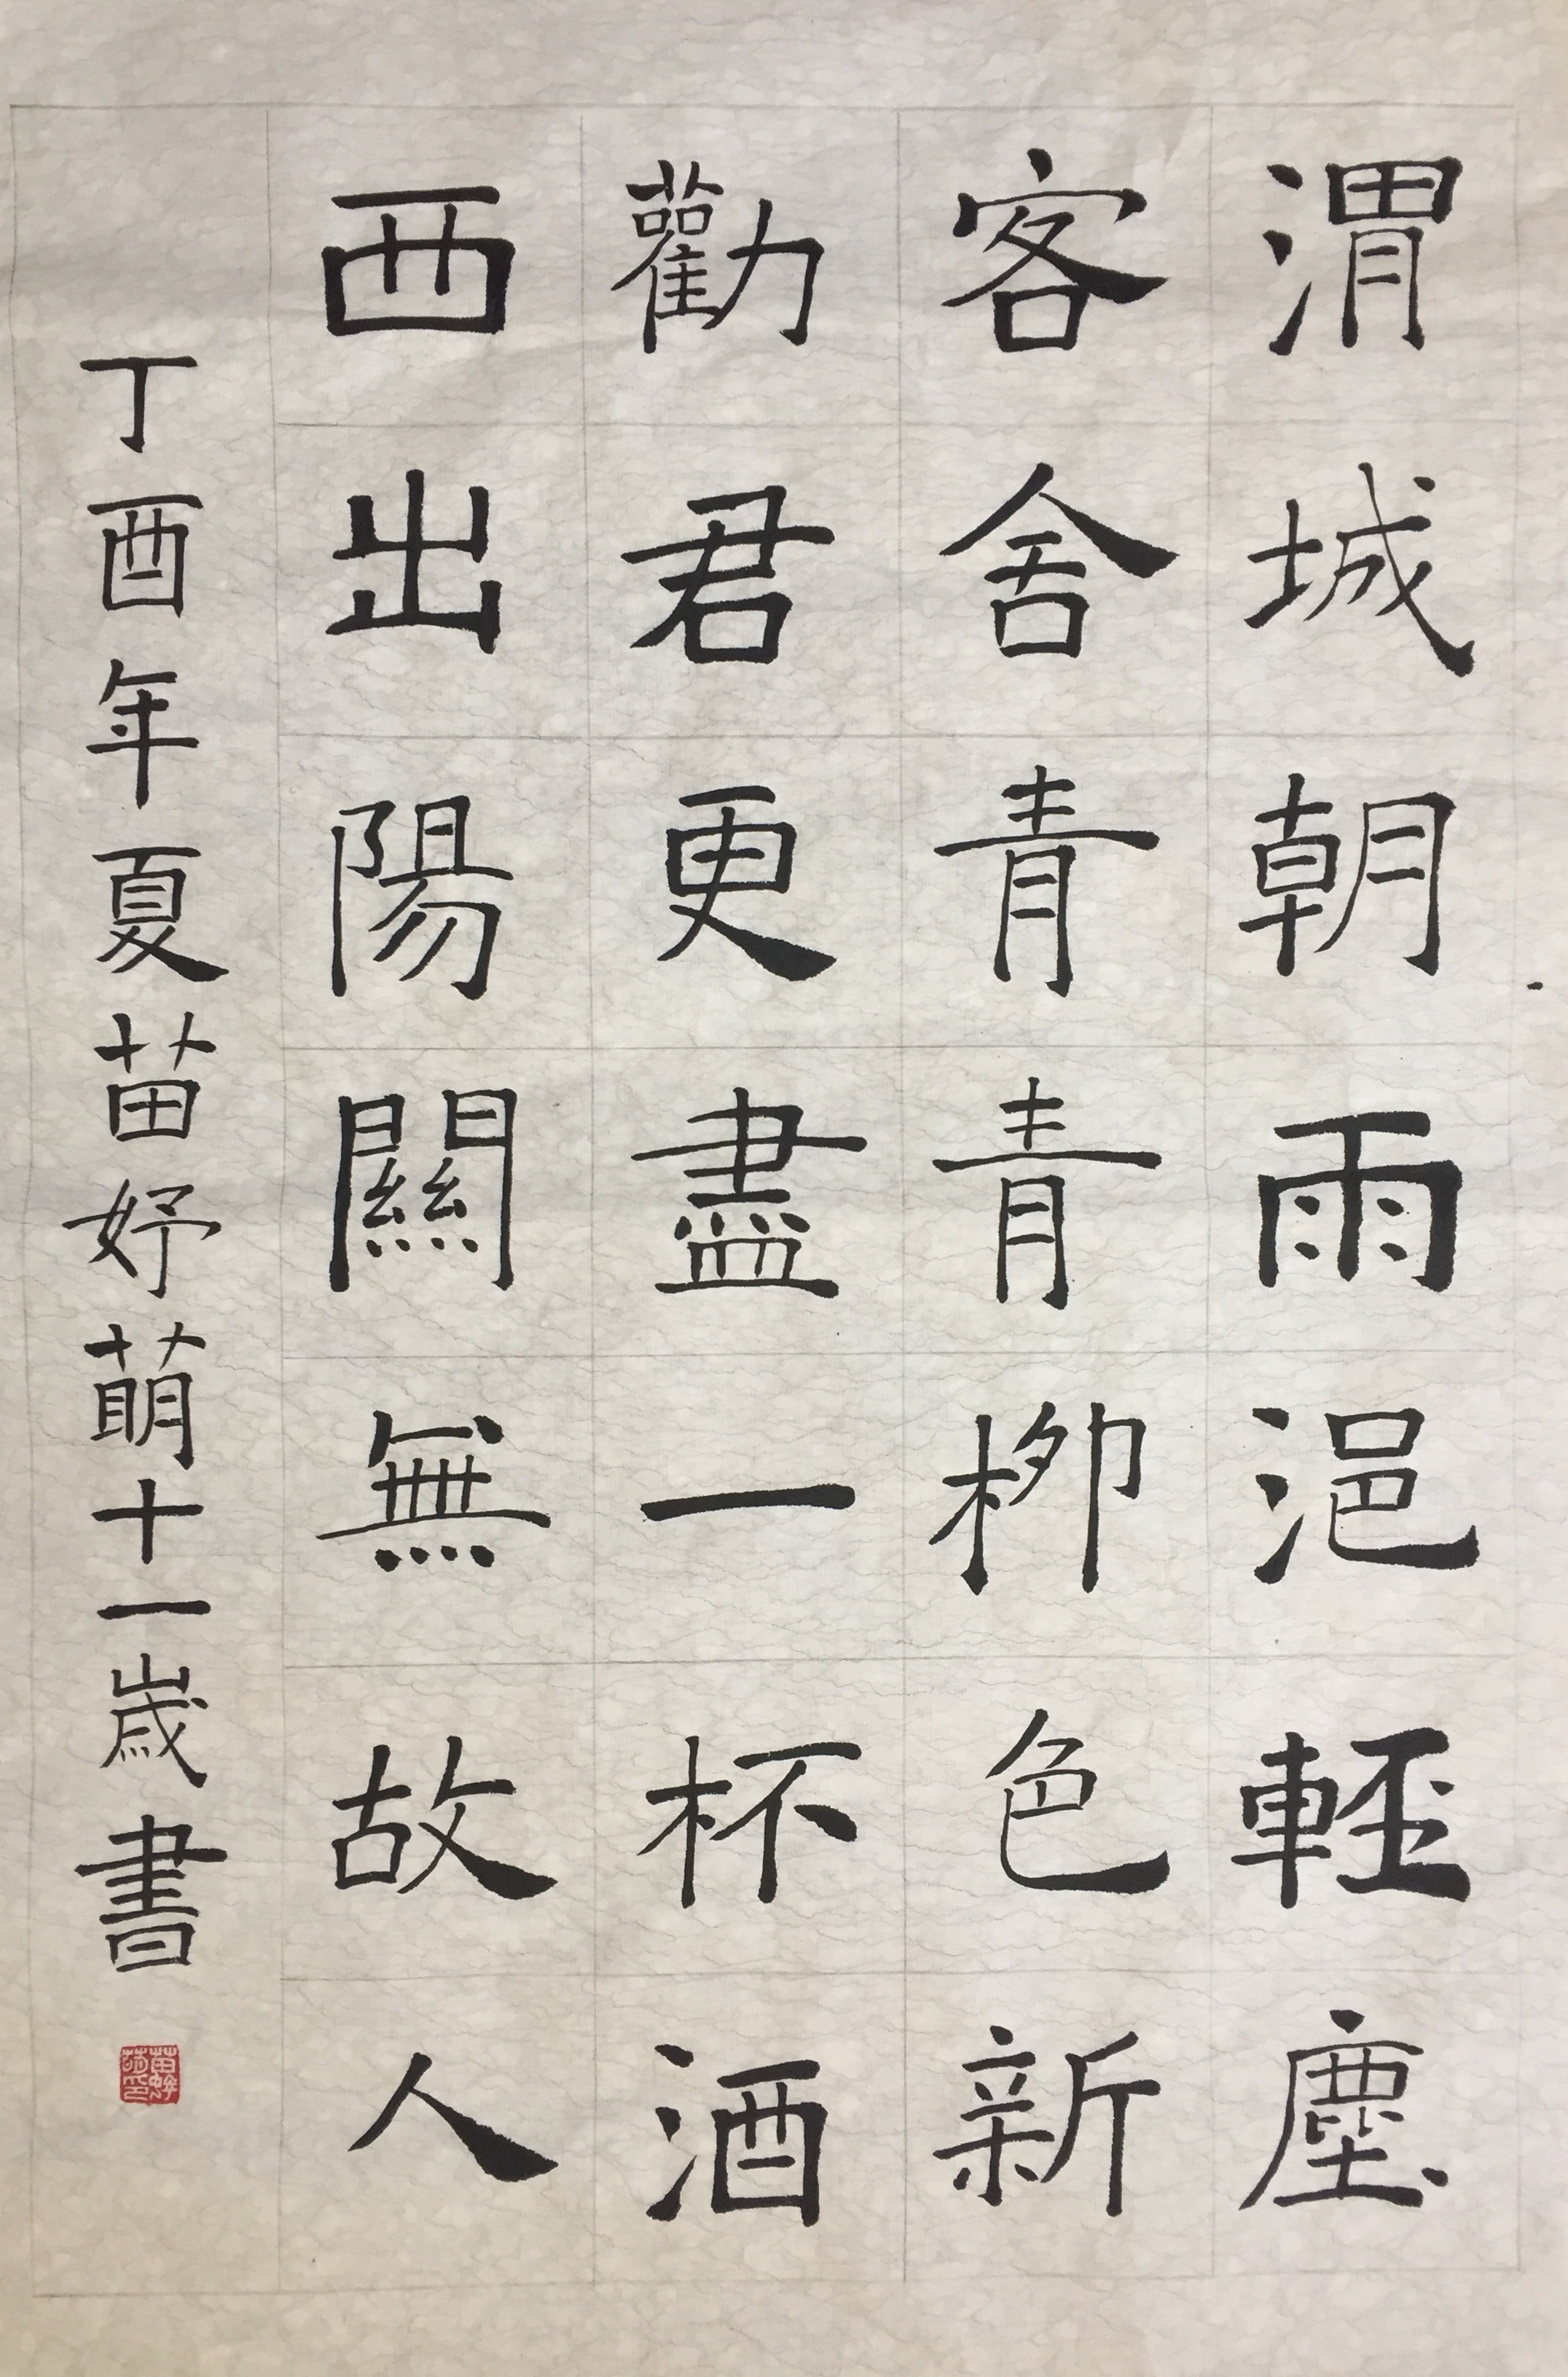 渭城朝雨浥輕塵
客舍青青柳色新
勸君更盡一杯酒
西出陽關無故人
丁酉年夏苗妤萌十一歲書